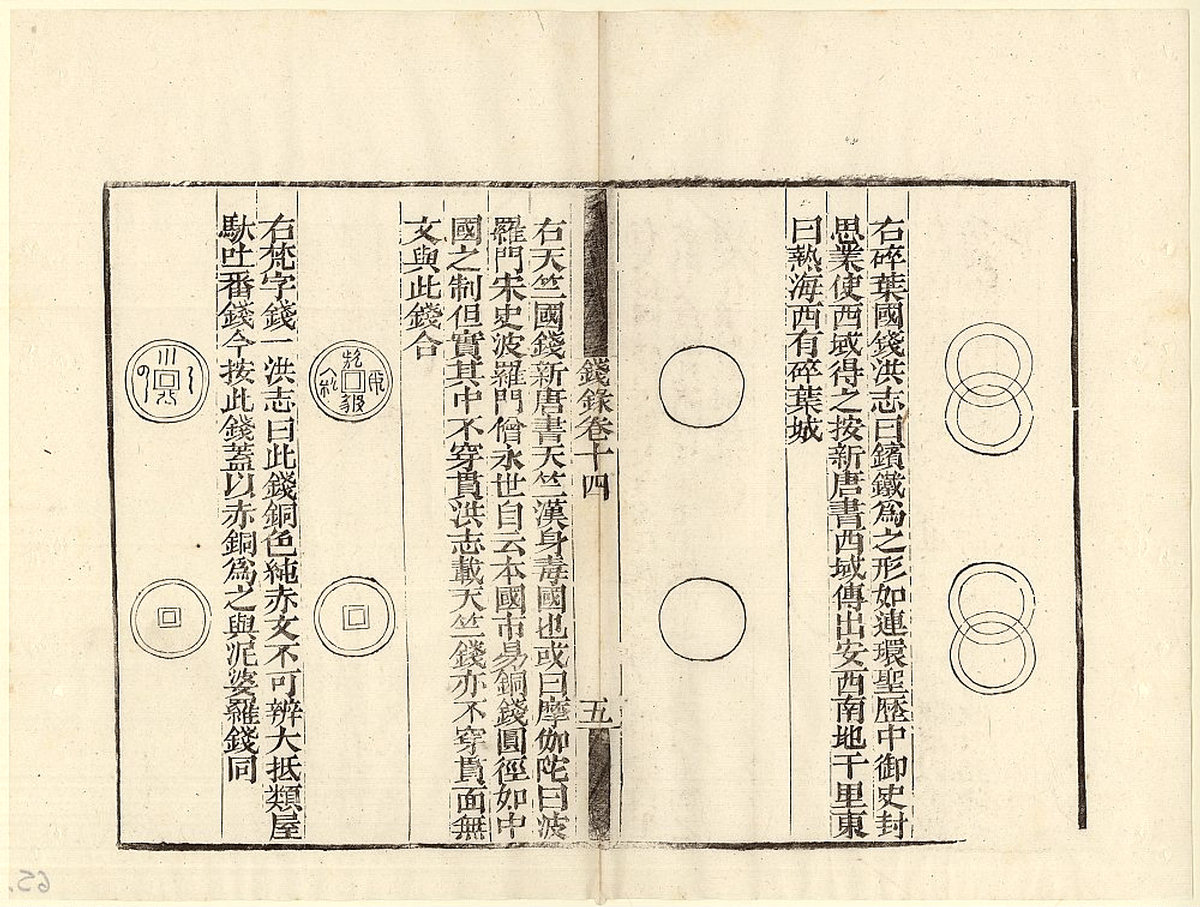 右碎葉國錢洪志曰鑌鐵為之形如連環聖歴中御史封
思業使西域得之按新唐書西域傳出安西南地千里東
曰熱海西有碎葉城
錢錄卷十四
五
右天竺國錢新唐書天竺漢身毒國也或曰摩伽陀曰波
羅門宋史波羅門僧永世自云本國市易銅錢圓徑如中
國之制但實其中不穿貫洪志載天竺錢亦不穿貫面無
文與此錢合
右梵字錢一洪志曰此錢銅色純赤文不可辨大抵類屋
馱吐番錢今按此錢蓋以赤銅為之與泥婆羅錢同
65.